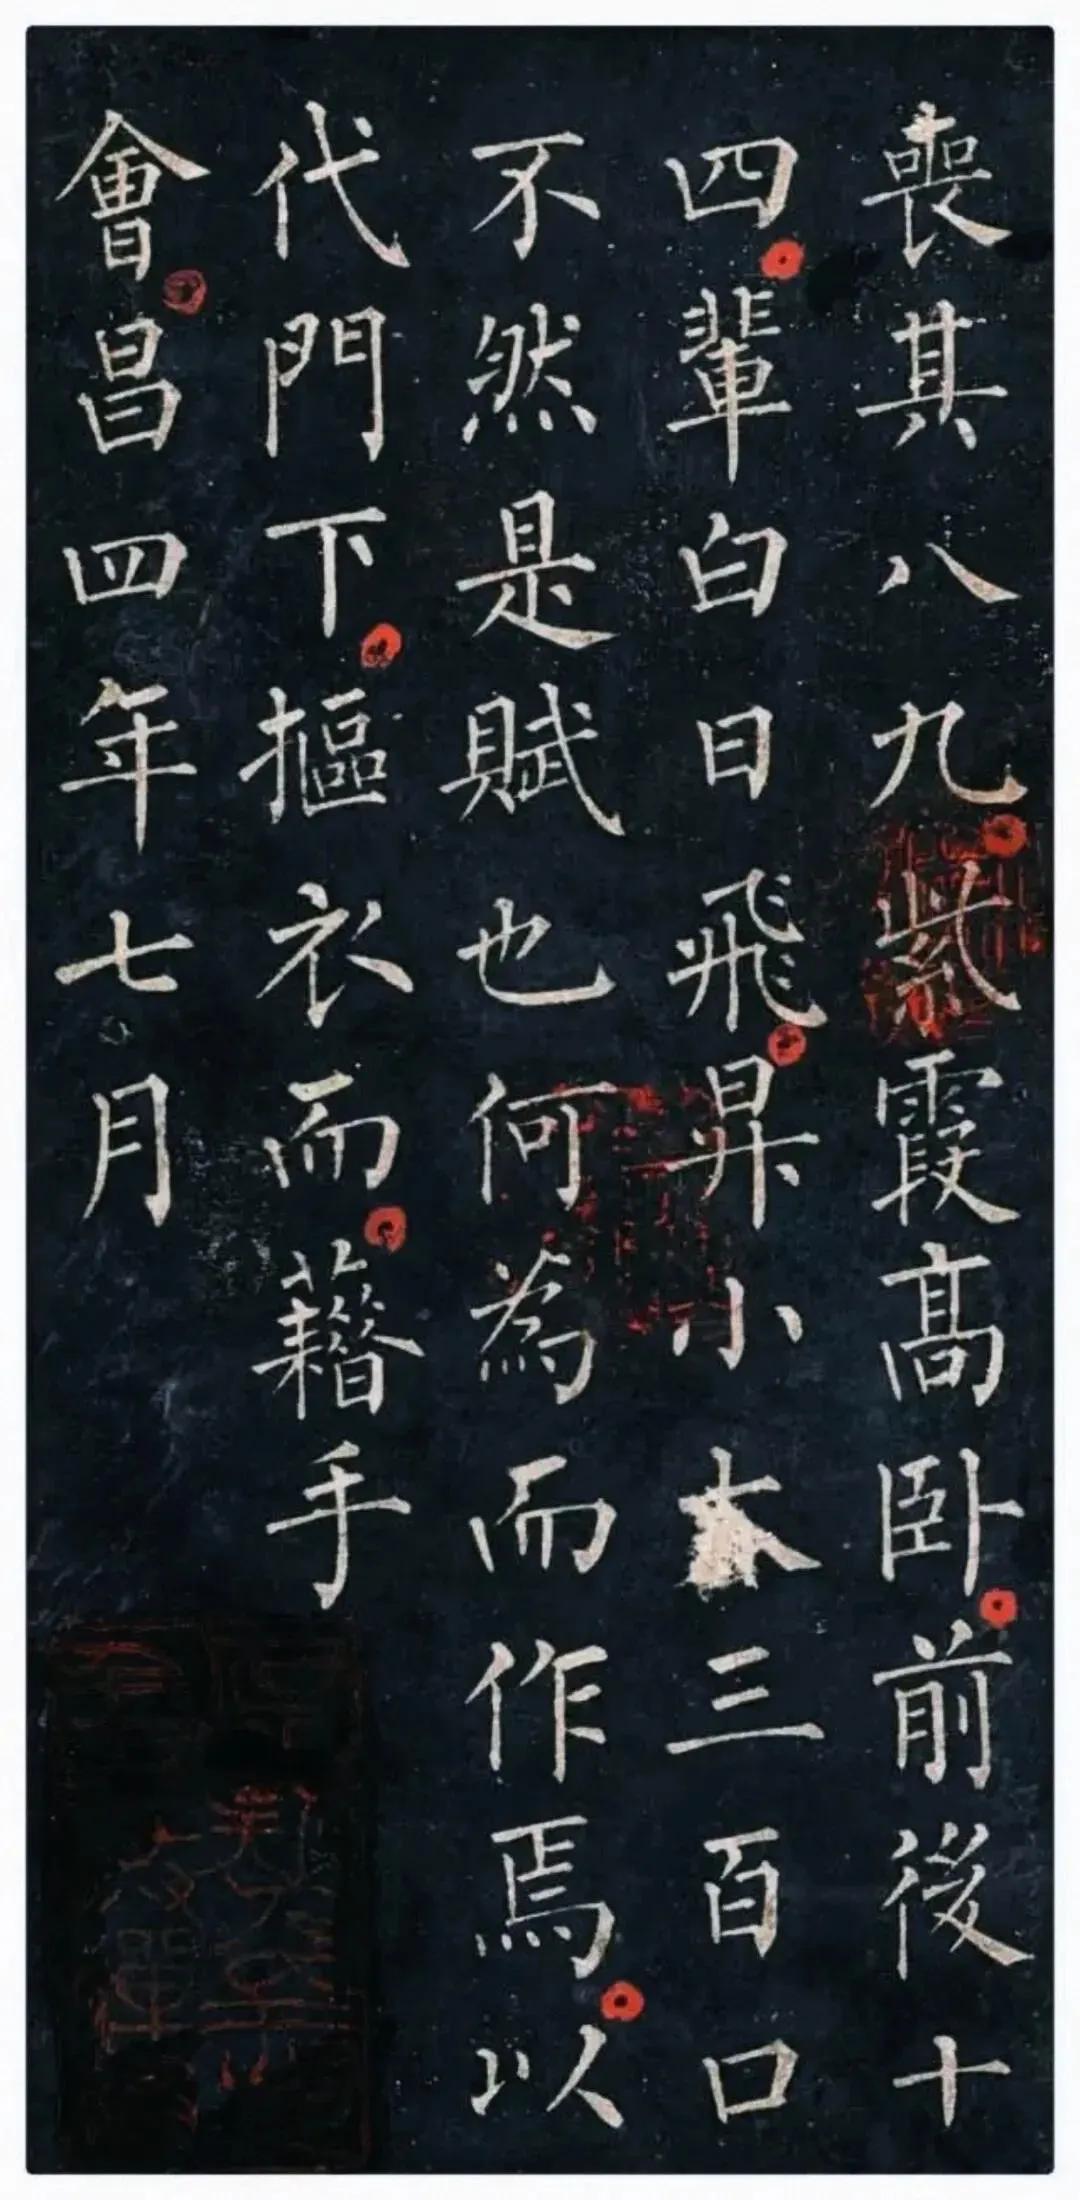 喪其八九紫霞高卧前後十
四輩白日飛昇小本三百口
不然是賦也何為而作焉以
代門下摳衣而藉手
會昌四年七月